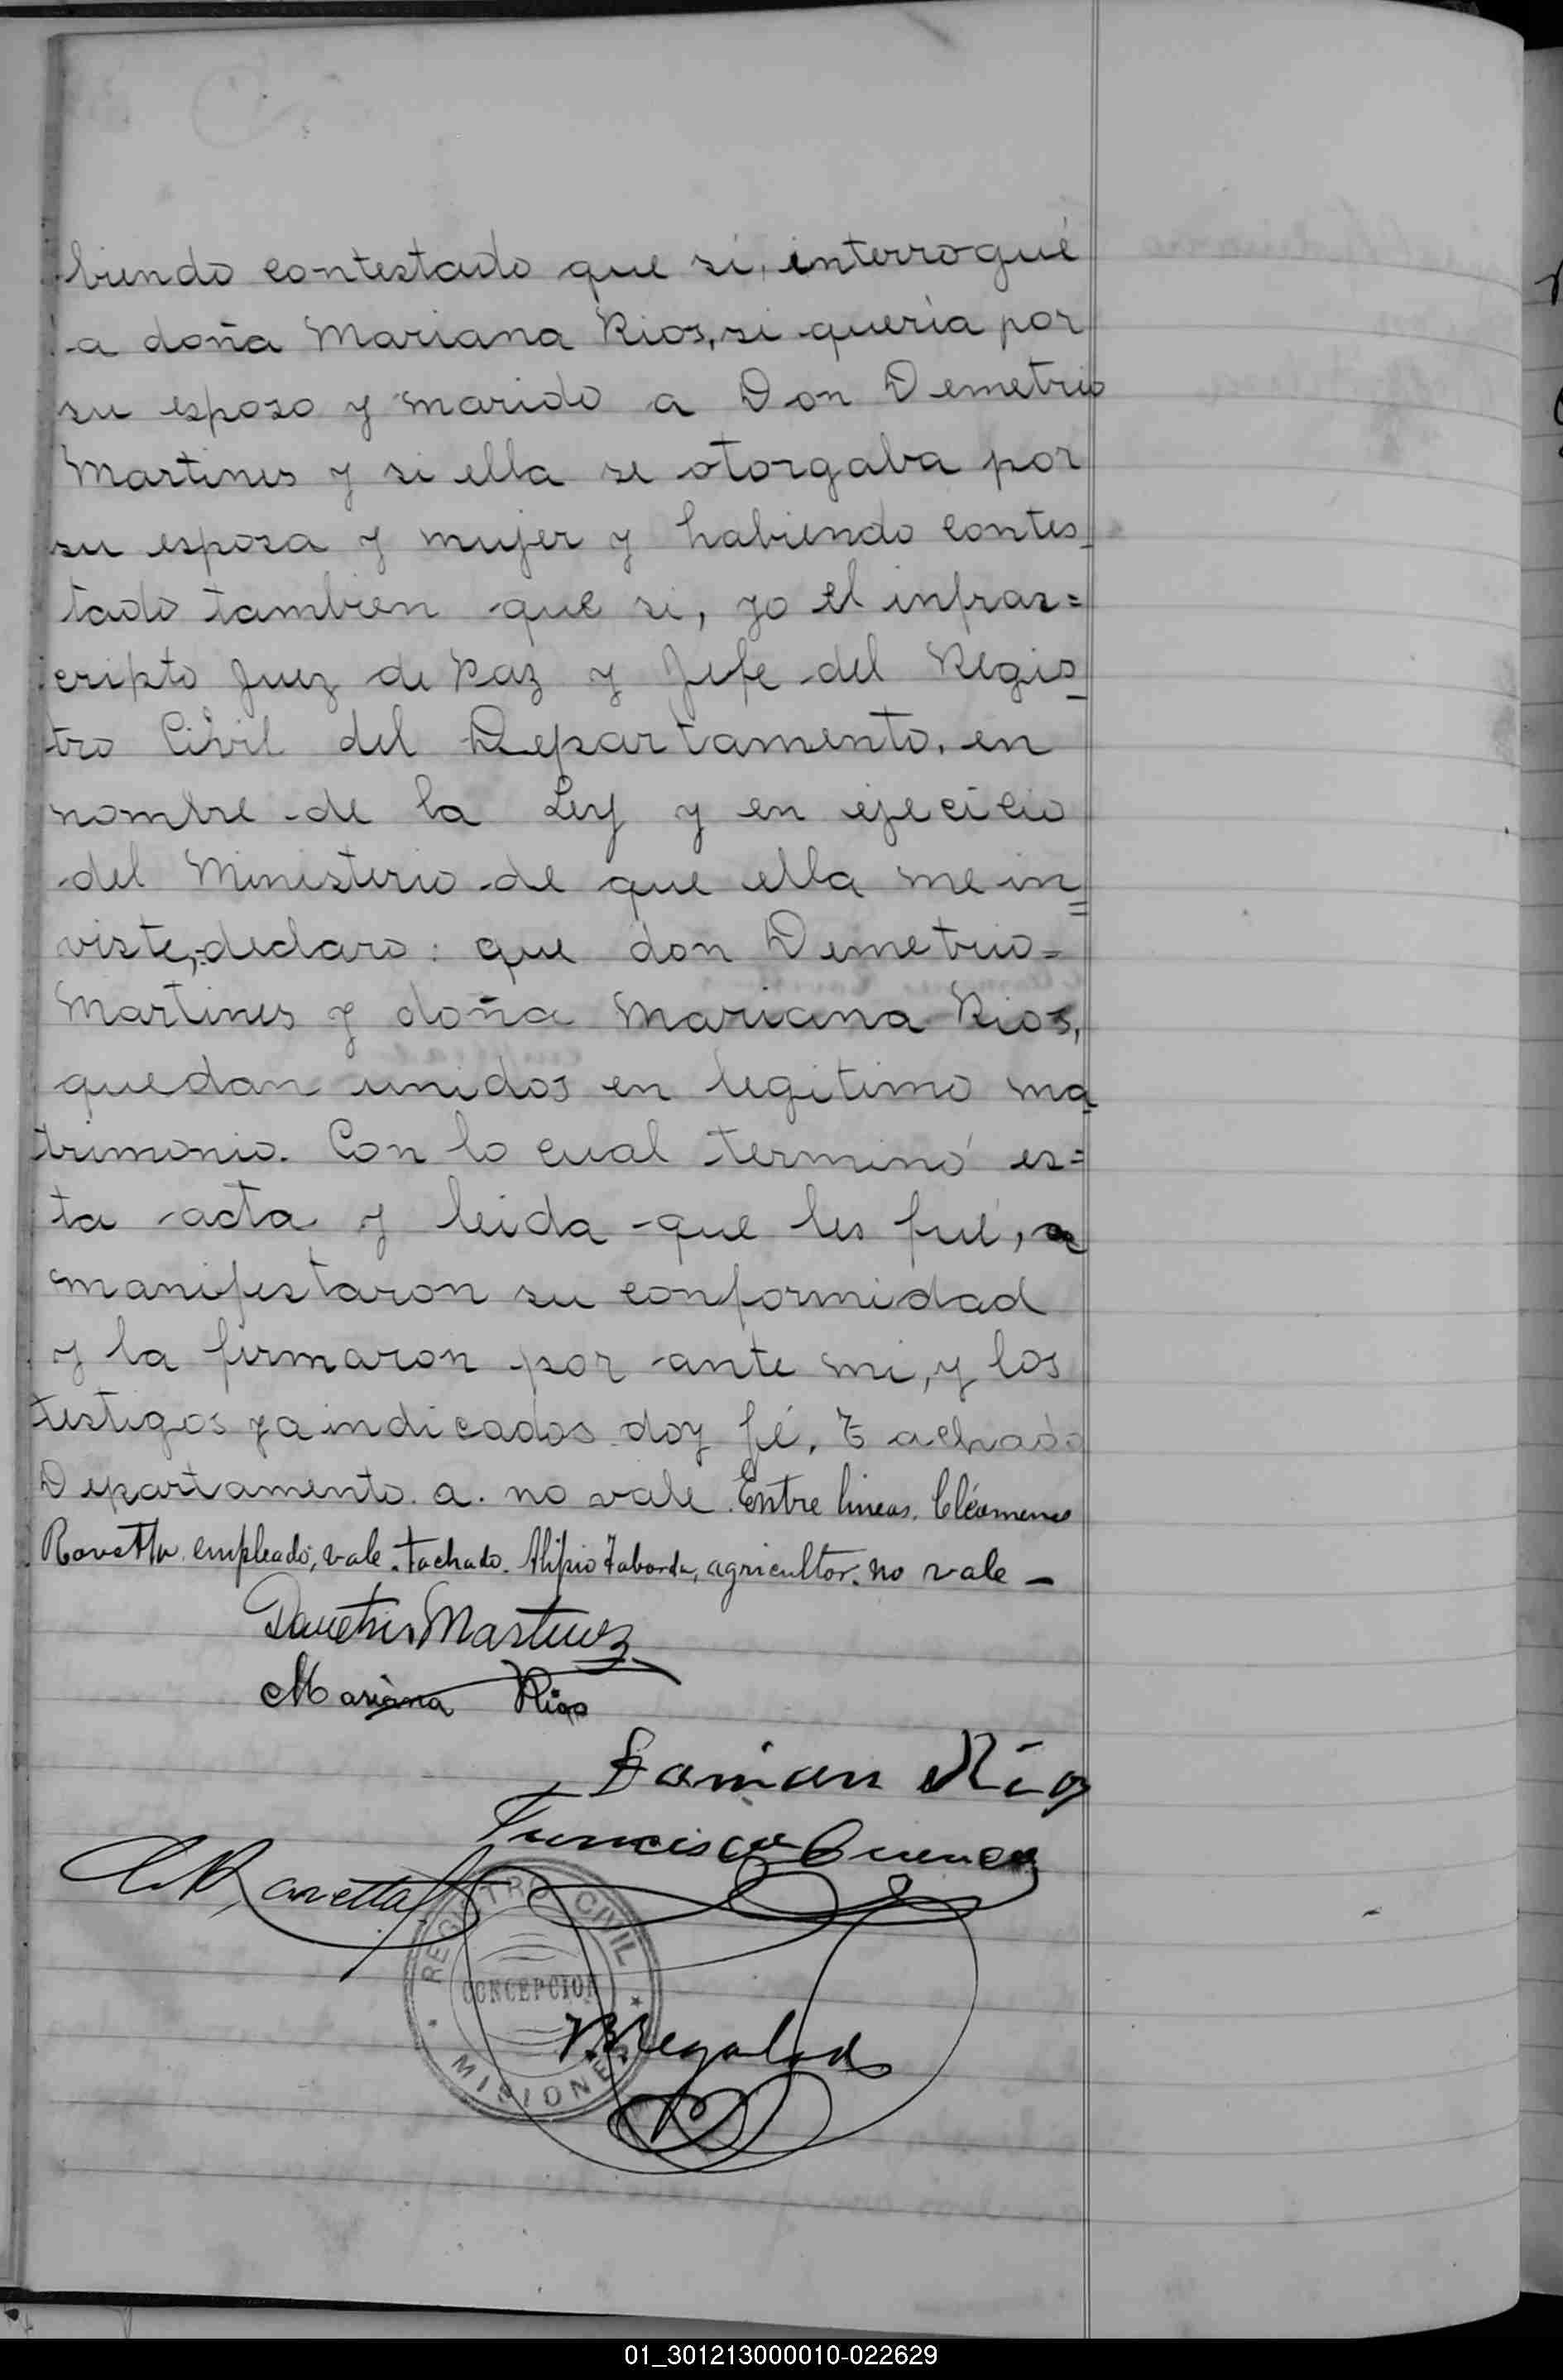 biendo contestado que si, interrogué
a doña Mariana Rios, si quería por
su esposo y marido a Don Demetrio
Martines y si ella se otorgaba por
su esposa y mujer y habiendo contes_
tado tambien que si, yo el infras=
cripto Juez de Paz y Jefe del Regis_
tro Civil del Departamento, en
nombre de la Ley y en ejecicio
del Ministerio de que ella me in=
viste, declaro: que don Demetrio=
Martines y doña Mariana Rios,
quedan unidos en legitimo ma_
trimonio. Con lo cual terminó es=
ta acta y leida que les fué,
manifestaron su conformidad
y la firmaron por ante mi, y los
testigos ya indicados doy fé. Tachado
Departamento. a. no vale. Entre lineas. Cléomenes
Rovetta empleado, vale. tachado. Alipio Taborda, agricultor. no vale _
Demetrio Martinez
Mariana Rios
Damian Rios
Francisco Cuenca
C. Rovetta
REGISTRO CIVIL
CONCEPCION
MISIONES
Regalado
01_301213000010-022629